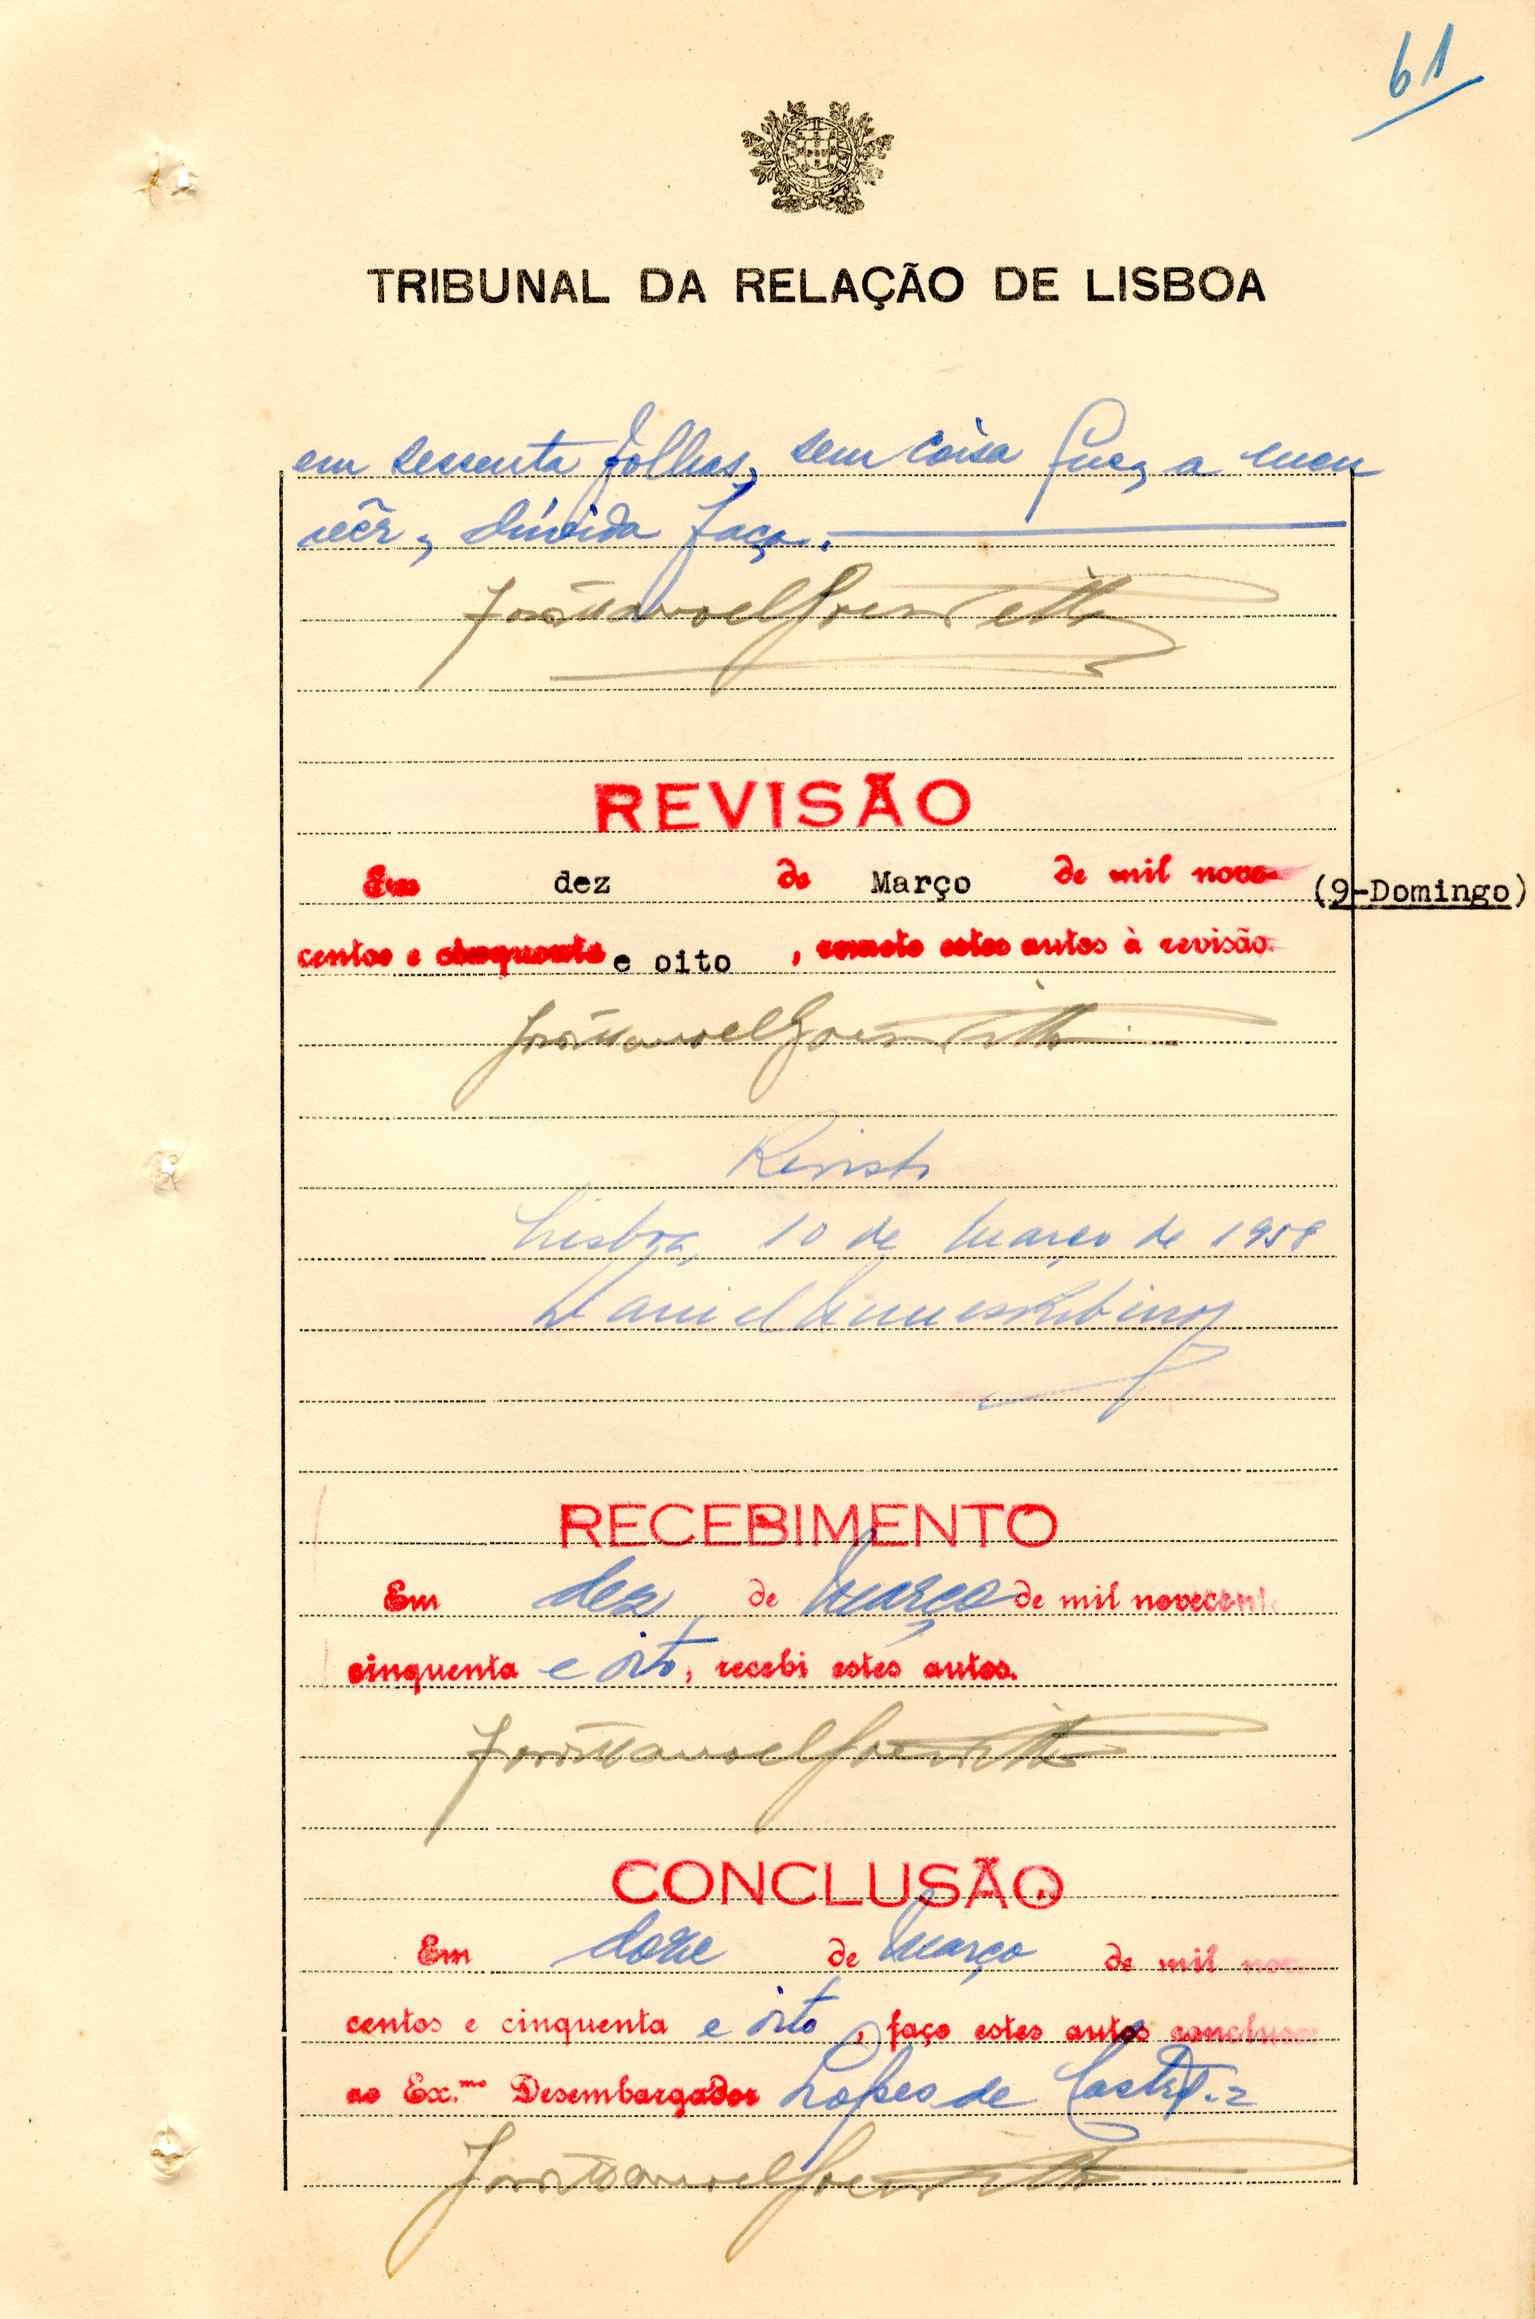 61
TRIBUNAL DA RELAÇÃO DE LISBOA
em sessenta folhas, sem coisa que, a meu
vêr, dúvida faça.
REVISÃO
Em dez de Março de mil nove- (9-Domingo)
centos e cinquenta e oito, remeto estes autos à revisão.
Revisto
Lisboa, 10 de Março de 1958
RECEBIMENTO
Em dez de Março de mil novecent
cinquenta e oito, recebi estes autos.
CONCLUSÃO
Em doze de Março de mil nov
centos e cinquenta e oito, faço estes autos conclusos
ao Ex.mo Desembargador Lopes de Castro.-